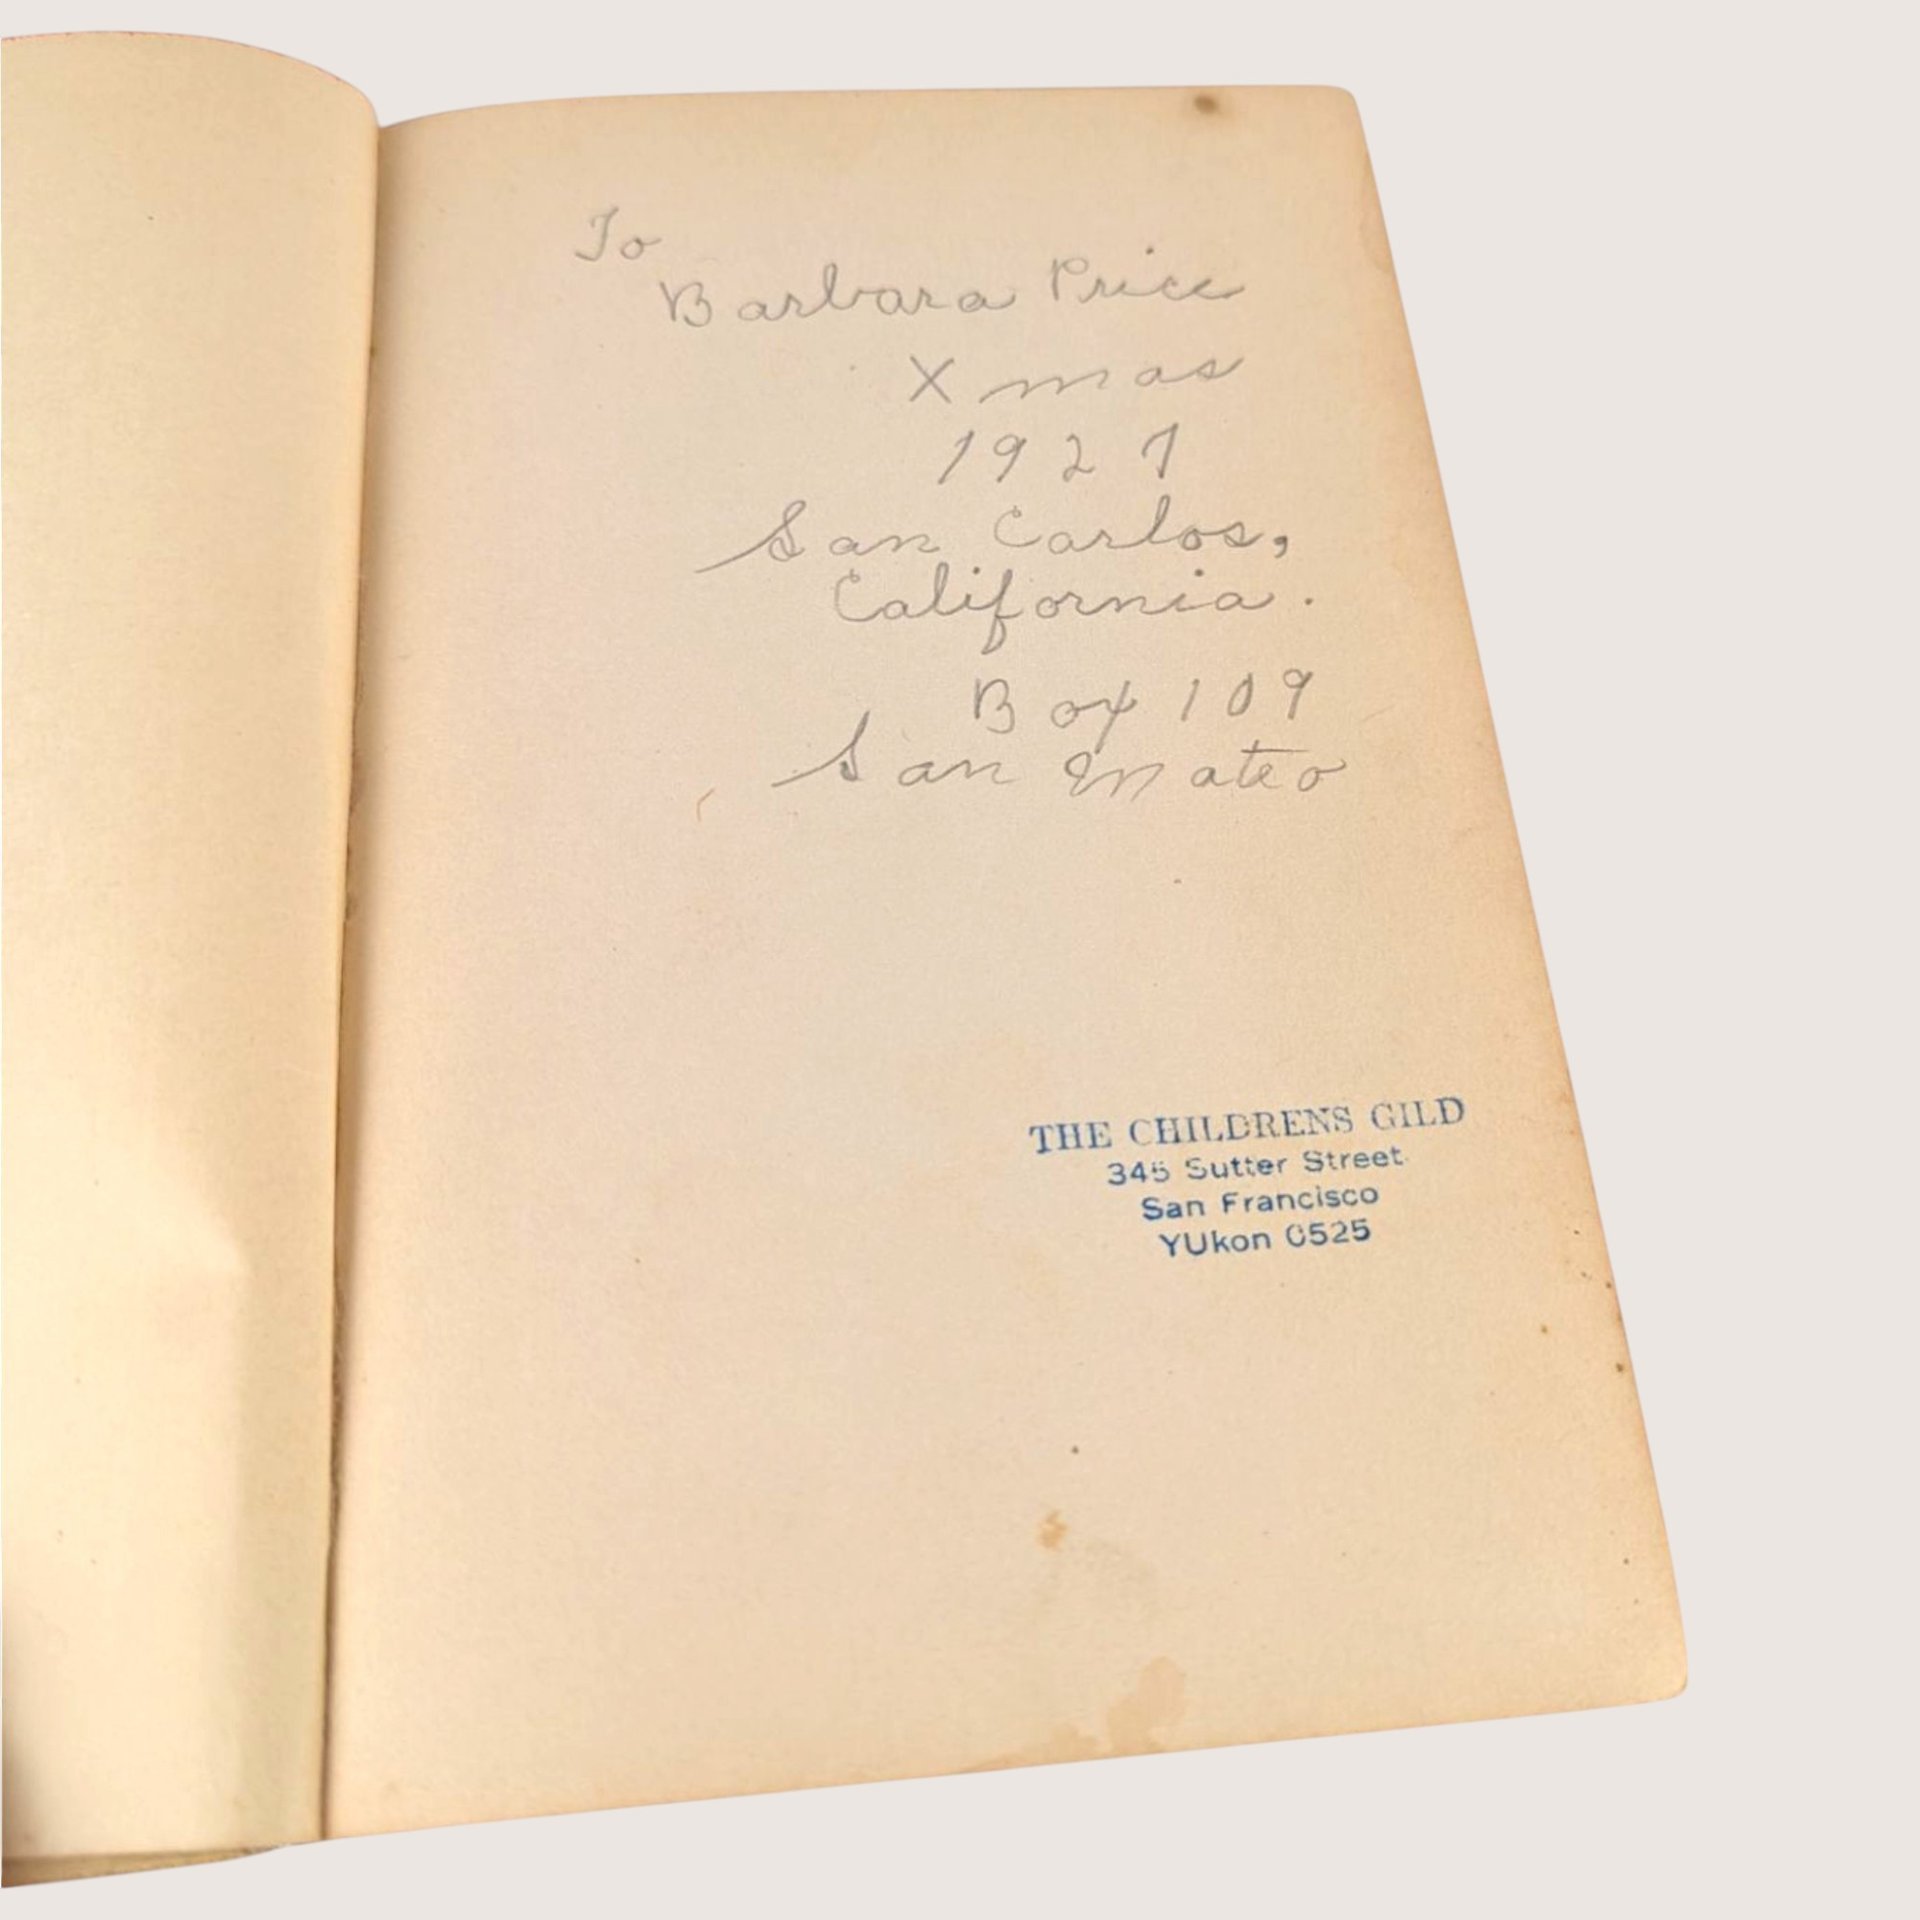 To
Barbara Price
Xmas
1927
San Carlos,
California.
Box 109
San Mateo
THE CHILDRENS GILD
345 Sutter Street
San Francisco
YUkon 0525